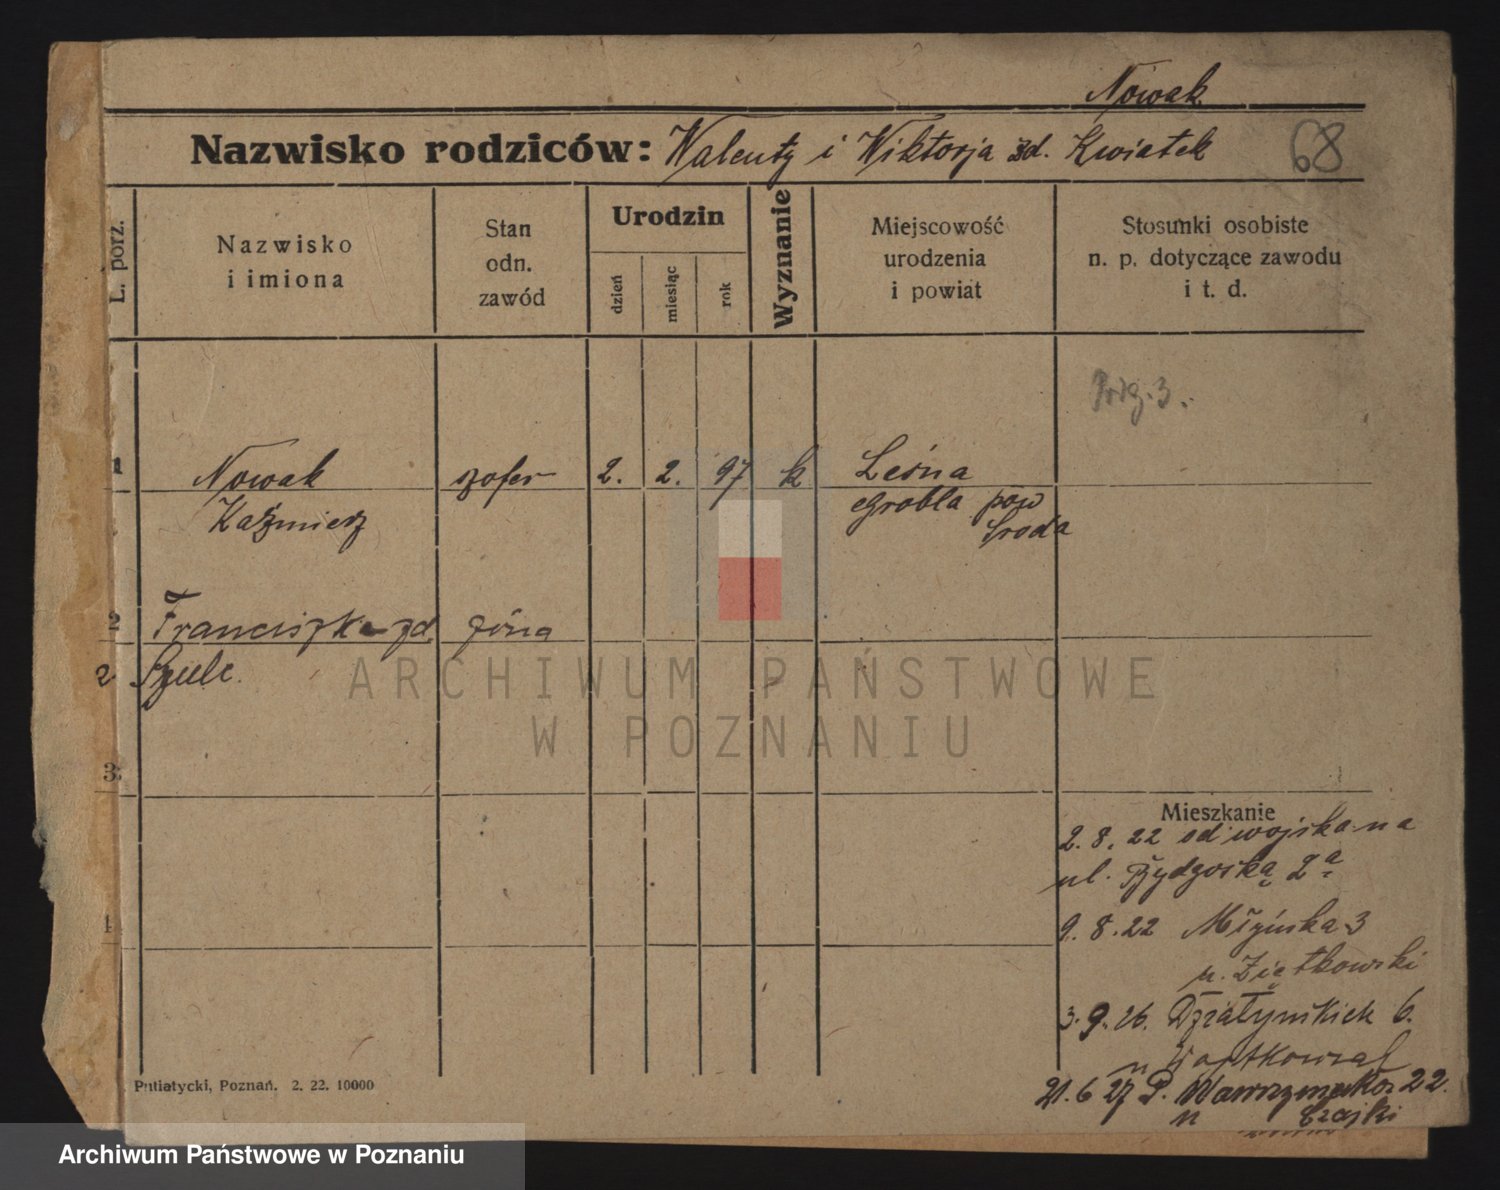 Nowak
Nazwisko rodziców: Walenty i Wiktorja zd. Kwiatek 68
L. porz.
Nazwisko
i imiona
Stan
odn.
zawód
Urodzin
dzień
miesiąc
rok
Wyznanie
Miejscowość
urodzenia
i powiat
Stosunki osobiste
n. p. dotyczące zawodu
i t. d.
1 Nowak szofer 2. 2. 97 k Leśna
Kaźmierz Grobla pow
Środa
2 Franciszka zd żóna
2 Szulc.
3
ARCHIWUM PAŃSTWOWE
W POZNANIU
Mieszkanie
2. 8. 22 od wojska na
ul. Bydgoską 2a
9. 8. 22 3
u. Ziętkowski
3. 9. 26. 6.
u
21. 6 27 P. Wawrzyniaka 22.
u Czajki
4
Putiatycki, Poznań. 2. 22. 10000
Archiwum Państwowe w Poznaniu